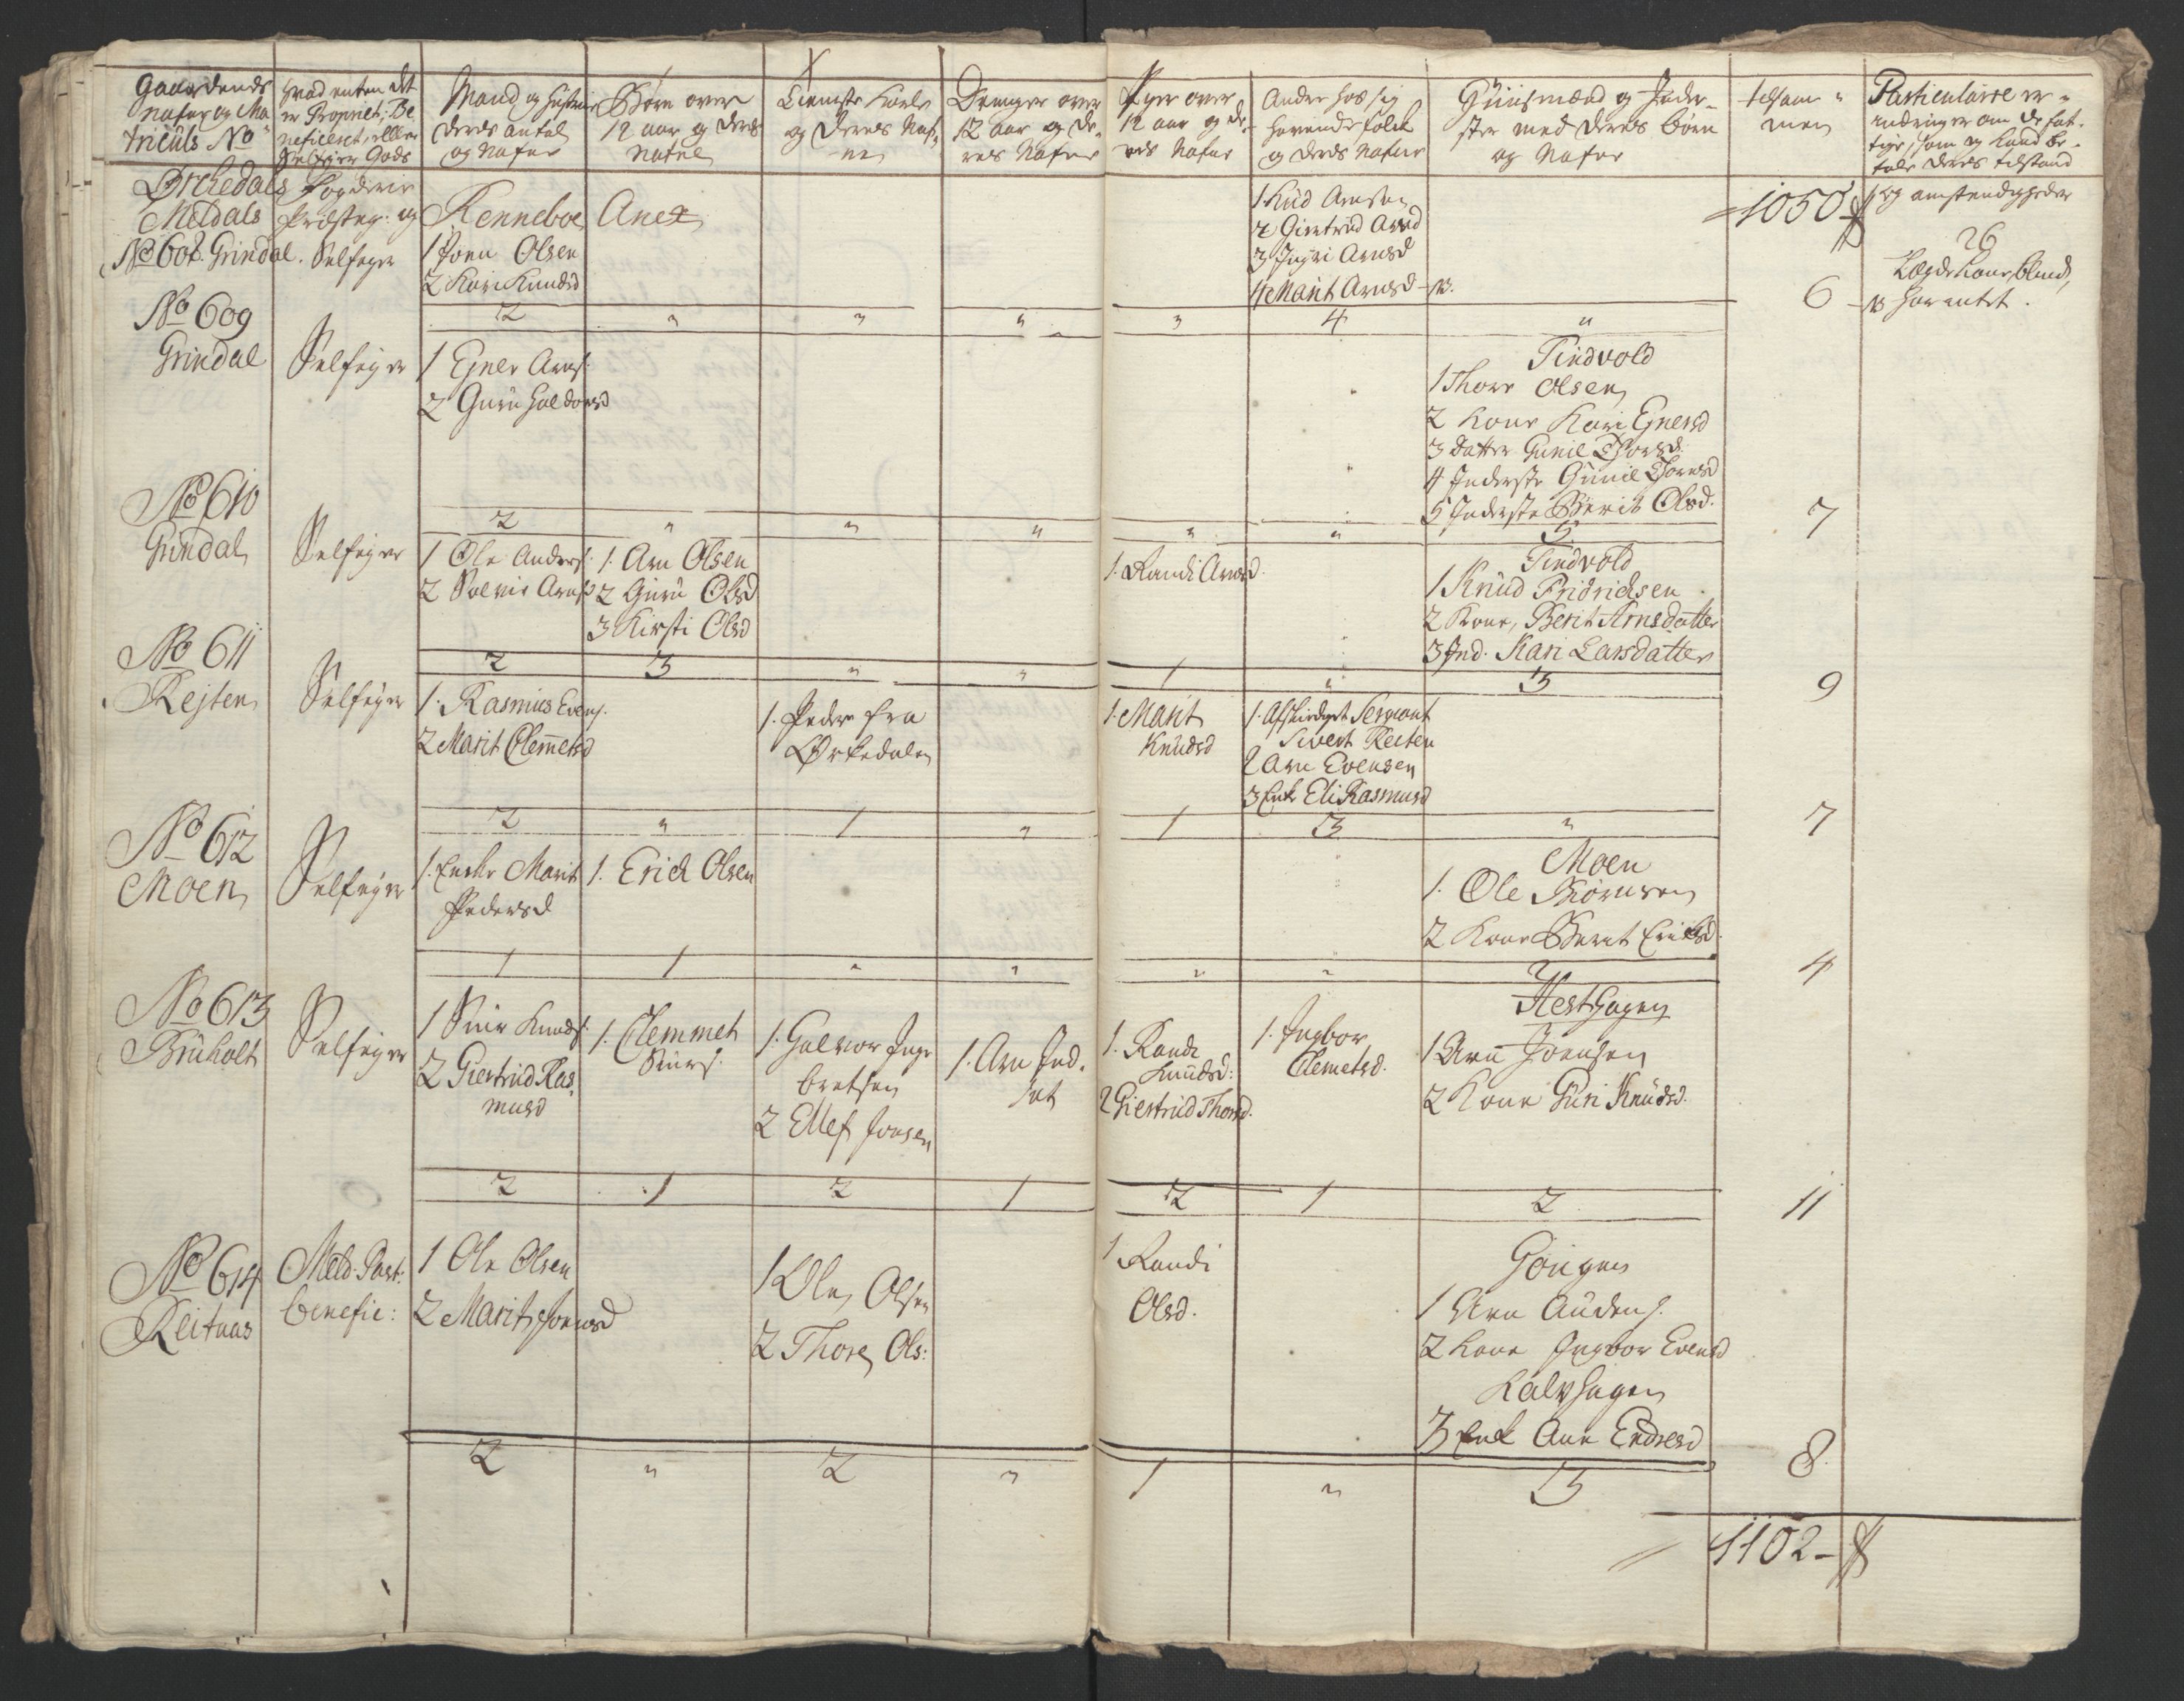 Gaardends
nafn og Ma
triculs No
hvad enten det
er Propriet; Be
neficeret, eller
Selfeier Gods
Mand og Hustrue
deres antal
og Nafne
Børn over
12 aar og deres
nafne
Tieniste Karle
og deres Naf-
ne
Drenger over
12 aar og de-
res Nafne
Piger over
12 aar og de-
res Nafne
Andre hos sig
havende folck
og deres Nafne
Huusmænd og Inder-
ster med deres børn
og Nafne
tilsam-
men
Particulaire er-
indringer om de fat-
tige, som og Land be-
tale deres tilstand
og omstendigheder
Orckedals Fogderie
Meldals Præsteg: og Renneboe Anex
1050
26
No 608 Grindal. Selfeyer
1 Joen Olsen
2 Kari Knudsd
1 Knud Arnsen
2 Giertrud Arnsd
3 Ingri Arnsd
4 Marit Arnsd
2 " " " " 4 "
6
Lægdskone, blind,
har intet.
No 609
Grindal
Selfeyer
1 Ejner Arns:
2 Guru Haldorsd
Tindvold
1 Thore Olsen
2 Kone Kari Ejnersd
3 Datter Gunil Thorsd:
4 Inderste Gunil Thoresd
5 Inderste Berit Olsd.
2 " " " " " 5
7
No 610
Grindal
Selfeyer
1 Ole Anders:
2 Solvie Arnsd
1. Arn Olsen
2 Guru Olsd
3 Kirsti Olsd
1. Randi Arnsd.
Tindvold
1 Knud Fridrichsen
2 Kone, Berit Arnsdatter
3 Ind. Kari Larsdatter
2 3 " " 1 " 3
9
No 611
Rejten
Selfeyer
1. Rasmus Evens.
2 Marit Clemmetsd
1. Peder fra
Ørkedalen
1. Marit
Knudsd
1. Afskediget Sergeant
Sivert Reiten
2 Arn Evensen
3 Enke Eli Rasmusd
2 " 1 " 1 3 "
7
No 612
Moen
Selfeyer
1. Enke Marit
Pedersd
1. Erick Olsen
Moen
1. Ole Biørnsen
2 Kone Berit Ericksd.
1 1 " " " " 2
4
No 613
Bruholt
Selfeyer
1 Siur Knuds:
2 Giertrud Ras
musd
1. Clemmet
Siurs:
1. Halvor Inge
bretsen
2 Ellef Jonsen
1. Arn Ind.
sat
1. Randi
Knudsd:
2 Giertrud Thorsd.
1. Ingbor
Clemetsd.
Hesthagen
1 Arn Joensen
2 Kone Guri Knudsd.
2 1 2 1 2 1 2
11
No 614
Reitaas
Meld. Past:
benefic:
1 Ole Olsen
2 Marit Joensd
1 Ole Olsen
2 Thore Ols:
1 Randi
Olsd.
1 Arn Audens.
2 Kone Ingbor Evensd
Kalvhagen
3 Enk Ane Endresd
2 " 2 " 1 " 3
8
1102